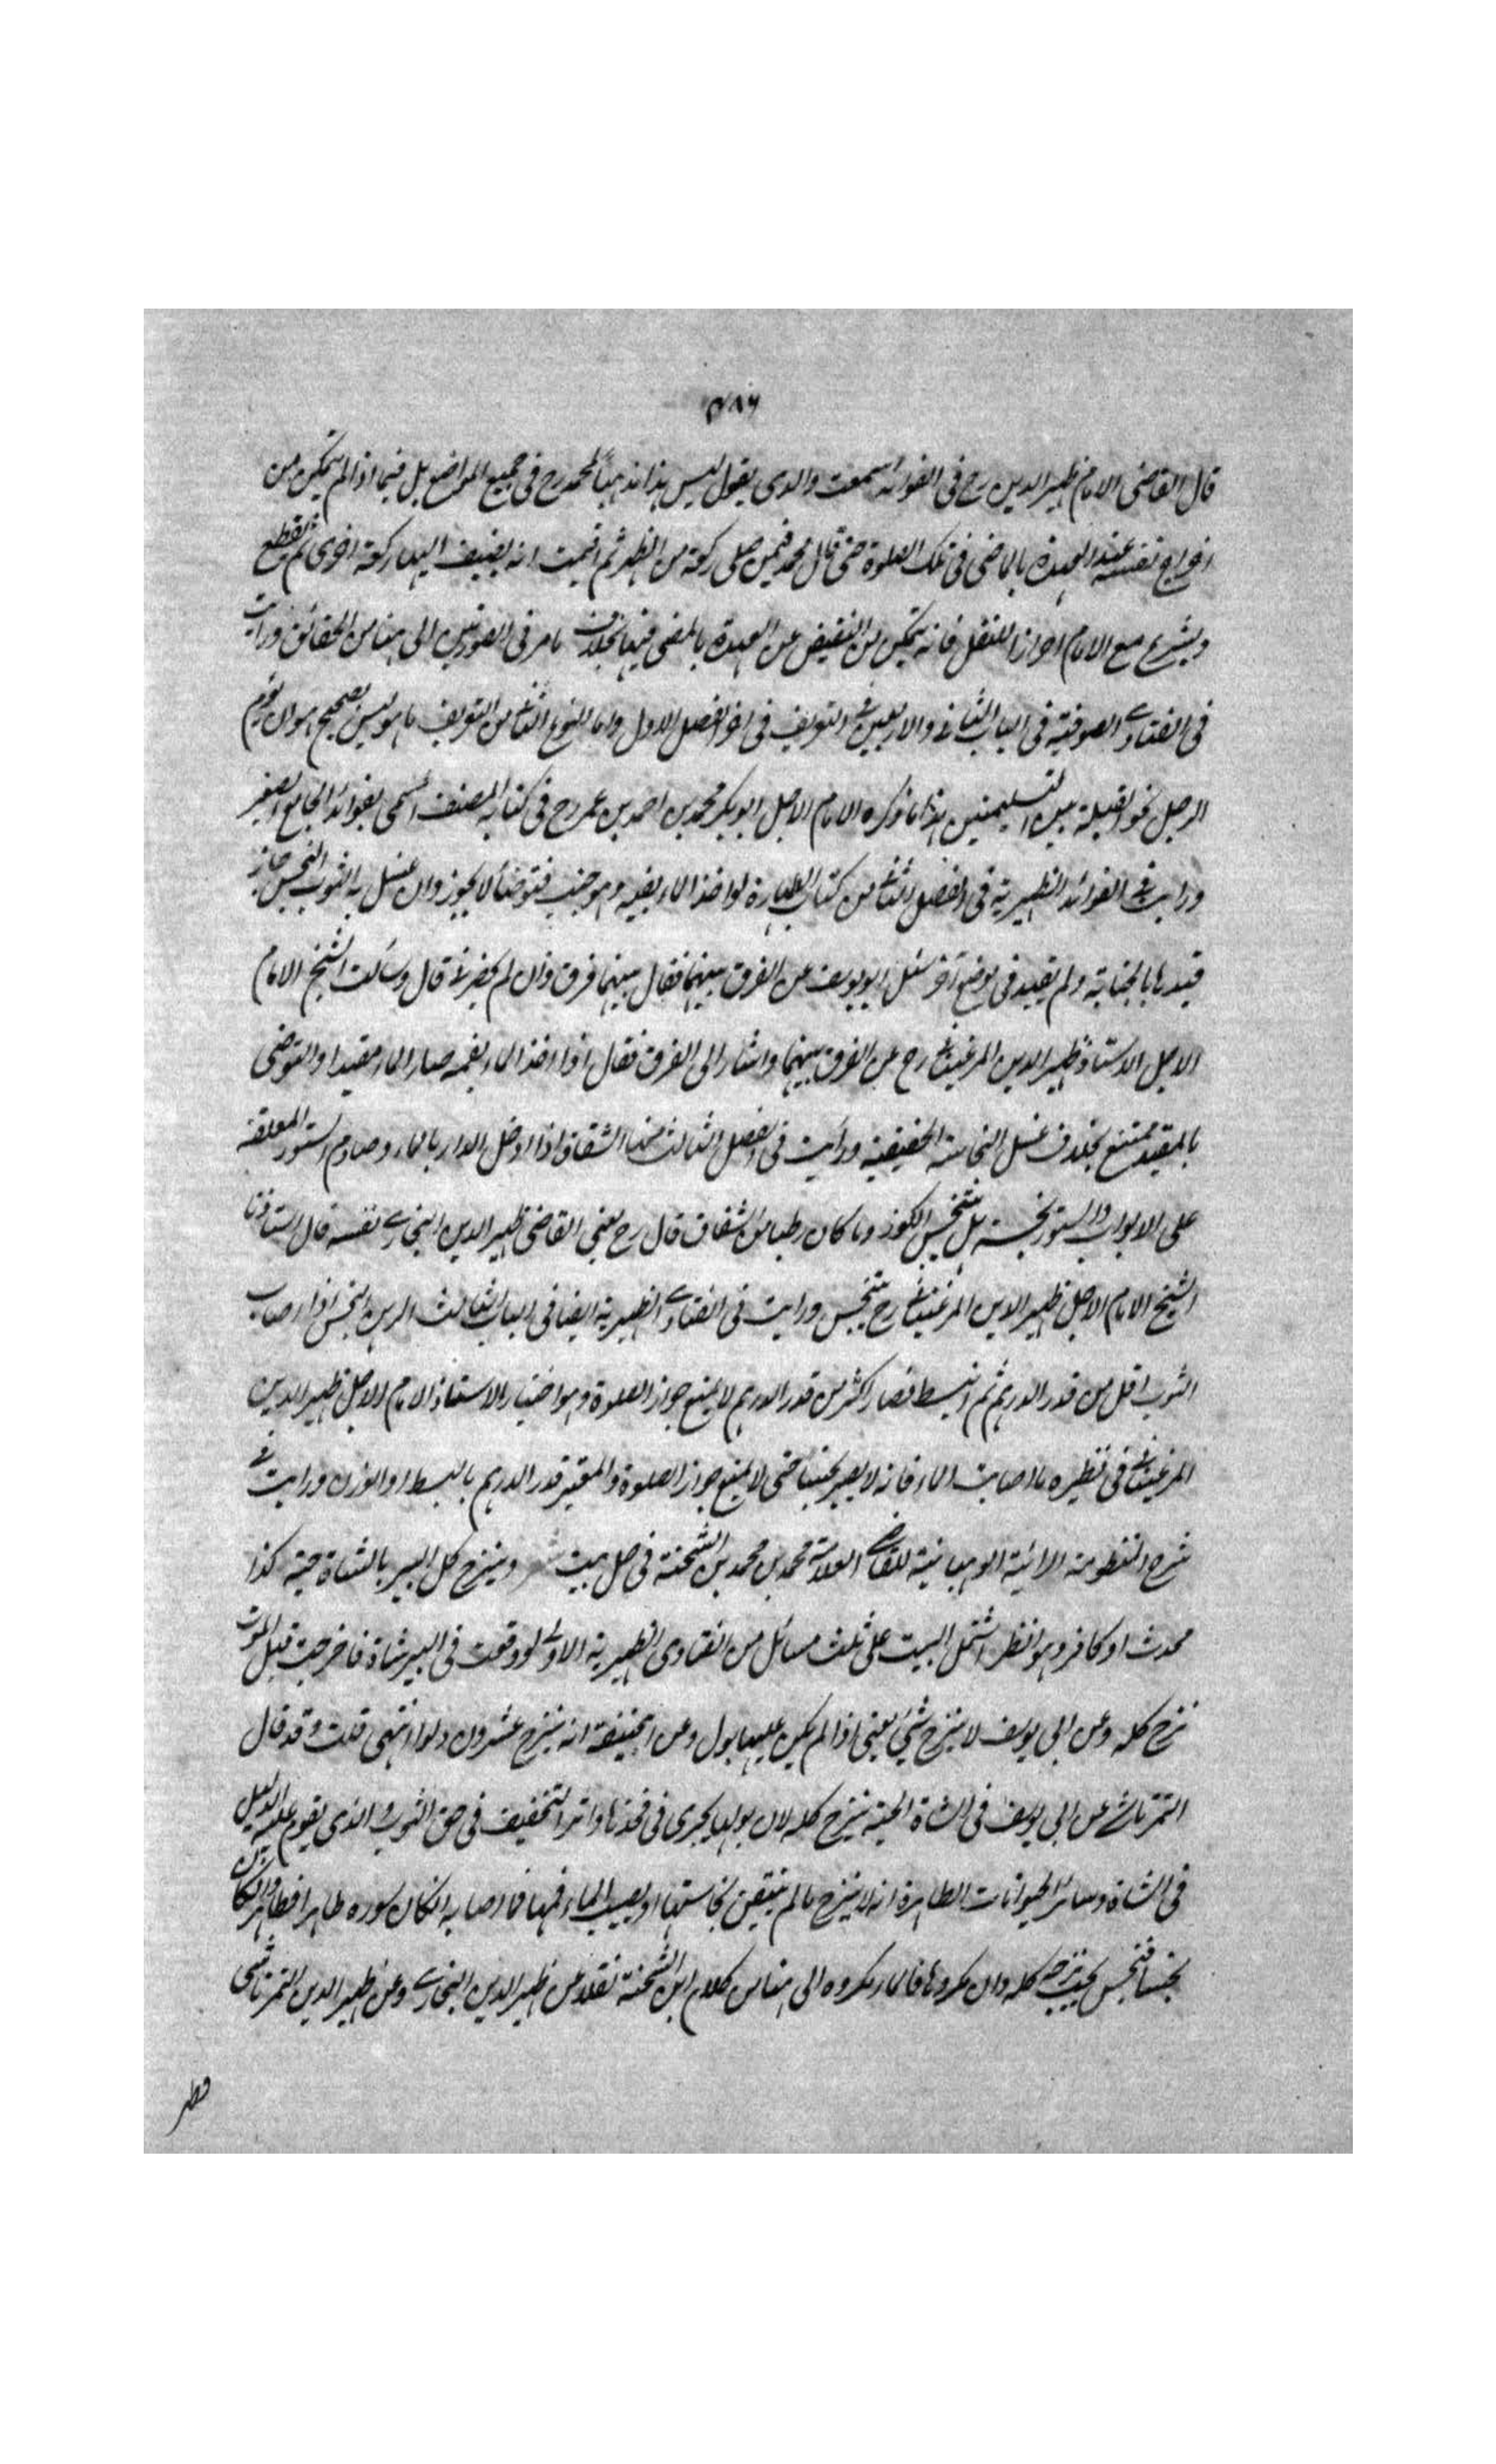 ٧٨٦
قال القاضى الامام ظهير الدين رح فى الفوائد سمعت والدى يقول ليس هذا مذهباً لمحمد رح فى جميع المواضع بل فيما اذا لم يتمكن من
اخراج نفسه عند العهدة بالماضى فى تلك الصلوة حتى قال محمد فيمن صلى ركعة من الظهر ثم اقيمت انه يضيف اليها ركعة اخرى ثم يقطع
ويشرع مع الامام احرازا للنفل فانه يتمكن من التفيض عن العهدة بالمضى فيها بخلاف ما مر فى الصورتين الى هنا من الحقائق ورايت
فى الفتاوى الصوفية فى الباب الثانى والاربعين فى التعريف فى اخر الفصل الاول واما النوع الثانى من التعريف ما هو ليس بصحيح هو ان يقوم
الرجل نحو القبلة بين التسليمتين هذا ما ذكره الامام الاجل ابو بكر محمد بن احمد بن عمر رح فى كتابه المصنف المسمى بفوائد الجامع الصغير
ورايت فى الفوائد الظهيرية فى الفصل الثانى من كتاب الطهارة لو اخذ الماء بفيه وهو جنب فتوضأ لا يجوز وان غسل به الثوب النجس جاز
قيدها بالجنابة ولم يقيد فى موضع آخر سئل ابو يوسف عن الفرق بينهما فقال بينهما فرق وان لم يحضرنى قال وسألت الشيخ الامام
الاجل الاستاذ ظهير الدين المرغينانى رح عن الفرق بينهما واشار الى الفرق فقال اذا اخذ الماء بفمه صار الماء مقيدا والتوضى
بالمقيد ممتنع بخلاف غسل النجاسة الحقيقية ورأيت فى الفصل الثالث منها الشقاق اذا ادخل الدار بالماء وصادم الستور المعلقة
على الابواب والستور نجسة بل يتنجس الكوز وما كان رطبا من الشقاق قال رح يعنى القاضى ظهير الدين البخارى نفسه قال استاذنا
الشيخ الامام الاجل ظهير الدين المرغينانى رح يتنجس ورايت فى الفتاوى الظهيرية ايضا فى الباب الثالث الدهن النجس اذا اصاب
الثوب اقل من قدر الدرهم ثم انبسط فصار اكثر من قدر الدرهم لا يمنع جواز الصلوة وهو اختيار الاستاذ الامام الاجل ظهير الدين
المرغينانى فى نظيره ما اصابت الماء فانه لا يصير نجسا حتى لا يمنع جواز الصلوة والمعتبر قدر الدرهم بالبسط او الوزن ورايت فى
شرح المنظومة الرائية الوهبانية للقاضى العلامة محمد بن محمد بن الشحنة فى حل بيت شعر وينزح كل البير بالشاة حية كذا
محدث او كافر وهو انظر اشتمل البيت على ثلث مسائل من الفتاوى الظهيرية الاولى لو وقعت فى البير شاة فاخرجت قبل الموت
نزح كله وعن ابى يوسف لا ينزح شيئ يعنى اذا لم يكن عليها بول وعن ابيحنيفة انه ينزح عشرون دلوا انتهى قلت وقد قال
التمرتاشى عن ابى يوسف فى الشاة الحية ينزح كله لان بولها يجرى فى فخذها واثر التخفيف فى حق الثوب والذى يقوم عليه الدليل
فى الشاة وسائر الحيوانات الطاهرة انه لا ينزح ما لم يتيقن نجاستها او يصيب الماء فمها فما اصابه ان كان سوره طاهرا فطاهر وان كان
نجسا فنجس يجب نزحه كله وان مكروها فالماء مكروه الى هنا من كلام ابن الشحنة نقلا عن ظهير الدين البخارى وعن ظهير الدين التمرتاشى